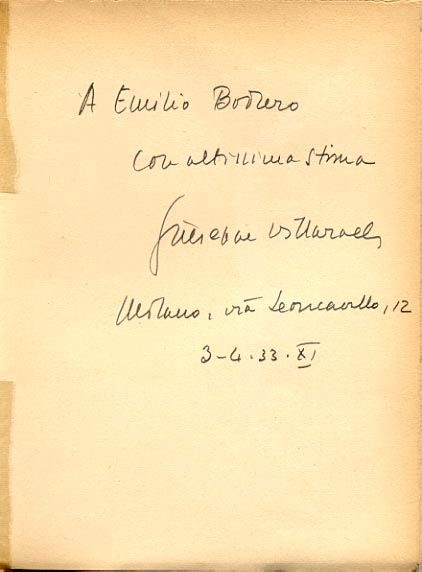 A Emilio Bodrero
con altissima stima
Giuseppe Villaroel
Milano, via Leoncavallo, 12
3-4.33.XI